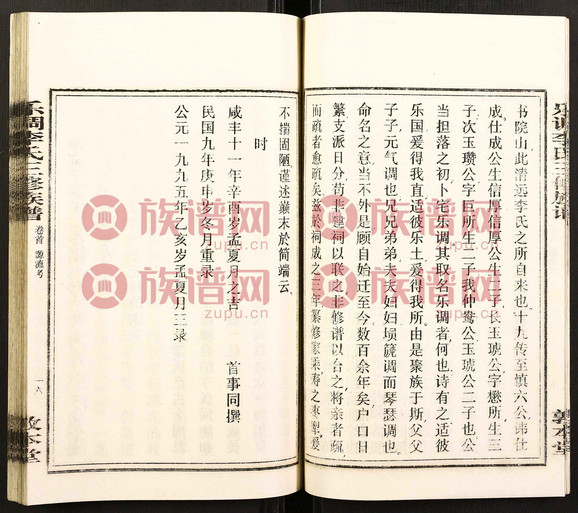 乐调李氏三修族谱
敦本堂
书院山此清远李氏之所自来也十九传至慎六公讳仕
成仕成公生信厚信厚公生三子长玉琥公字懋所生三
子次玉瓒公字巨所生二子我仲鸾公玉琥公二子也公
当担落之初卜宅乐调其取名乐调者何也诗有之适彼
乐国爰得我直适彼乐土爰得我所由是聚族于斯父父
子子元气调也兄兄弟弟夫夫妇妇埙篪调而琴瑟调也
命名之意当不外是顾自始迁至今数百余年矣户口日
繁支派日分苟非建祠以联之非修谱以合之将亲者疏
而疏者愈疏矣兹於祠成之三年纂修家乘寿之枣梨爰
不揣固陋谨述巅末於简端云
时
咸丰十一年辛酉岁孟夏月之吉 首事同撰
民国九年庚申岁冬月重录
公元一九九五年乙亥岁孟夏月三录
乐调李氏三修族谱
卷首 源流考
一六
敦本堂
族谱网
zupu.cn
族谱网
zupu.cn
族谱网
zupu.cn
族谱网
zupu.cn